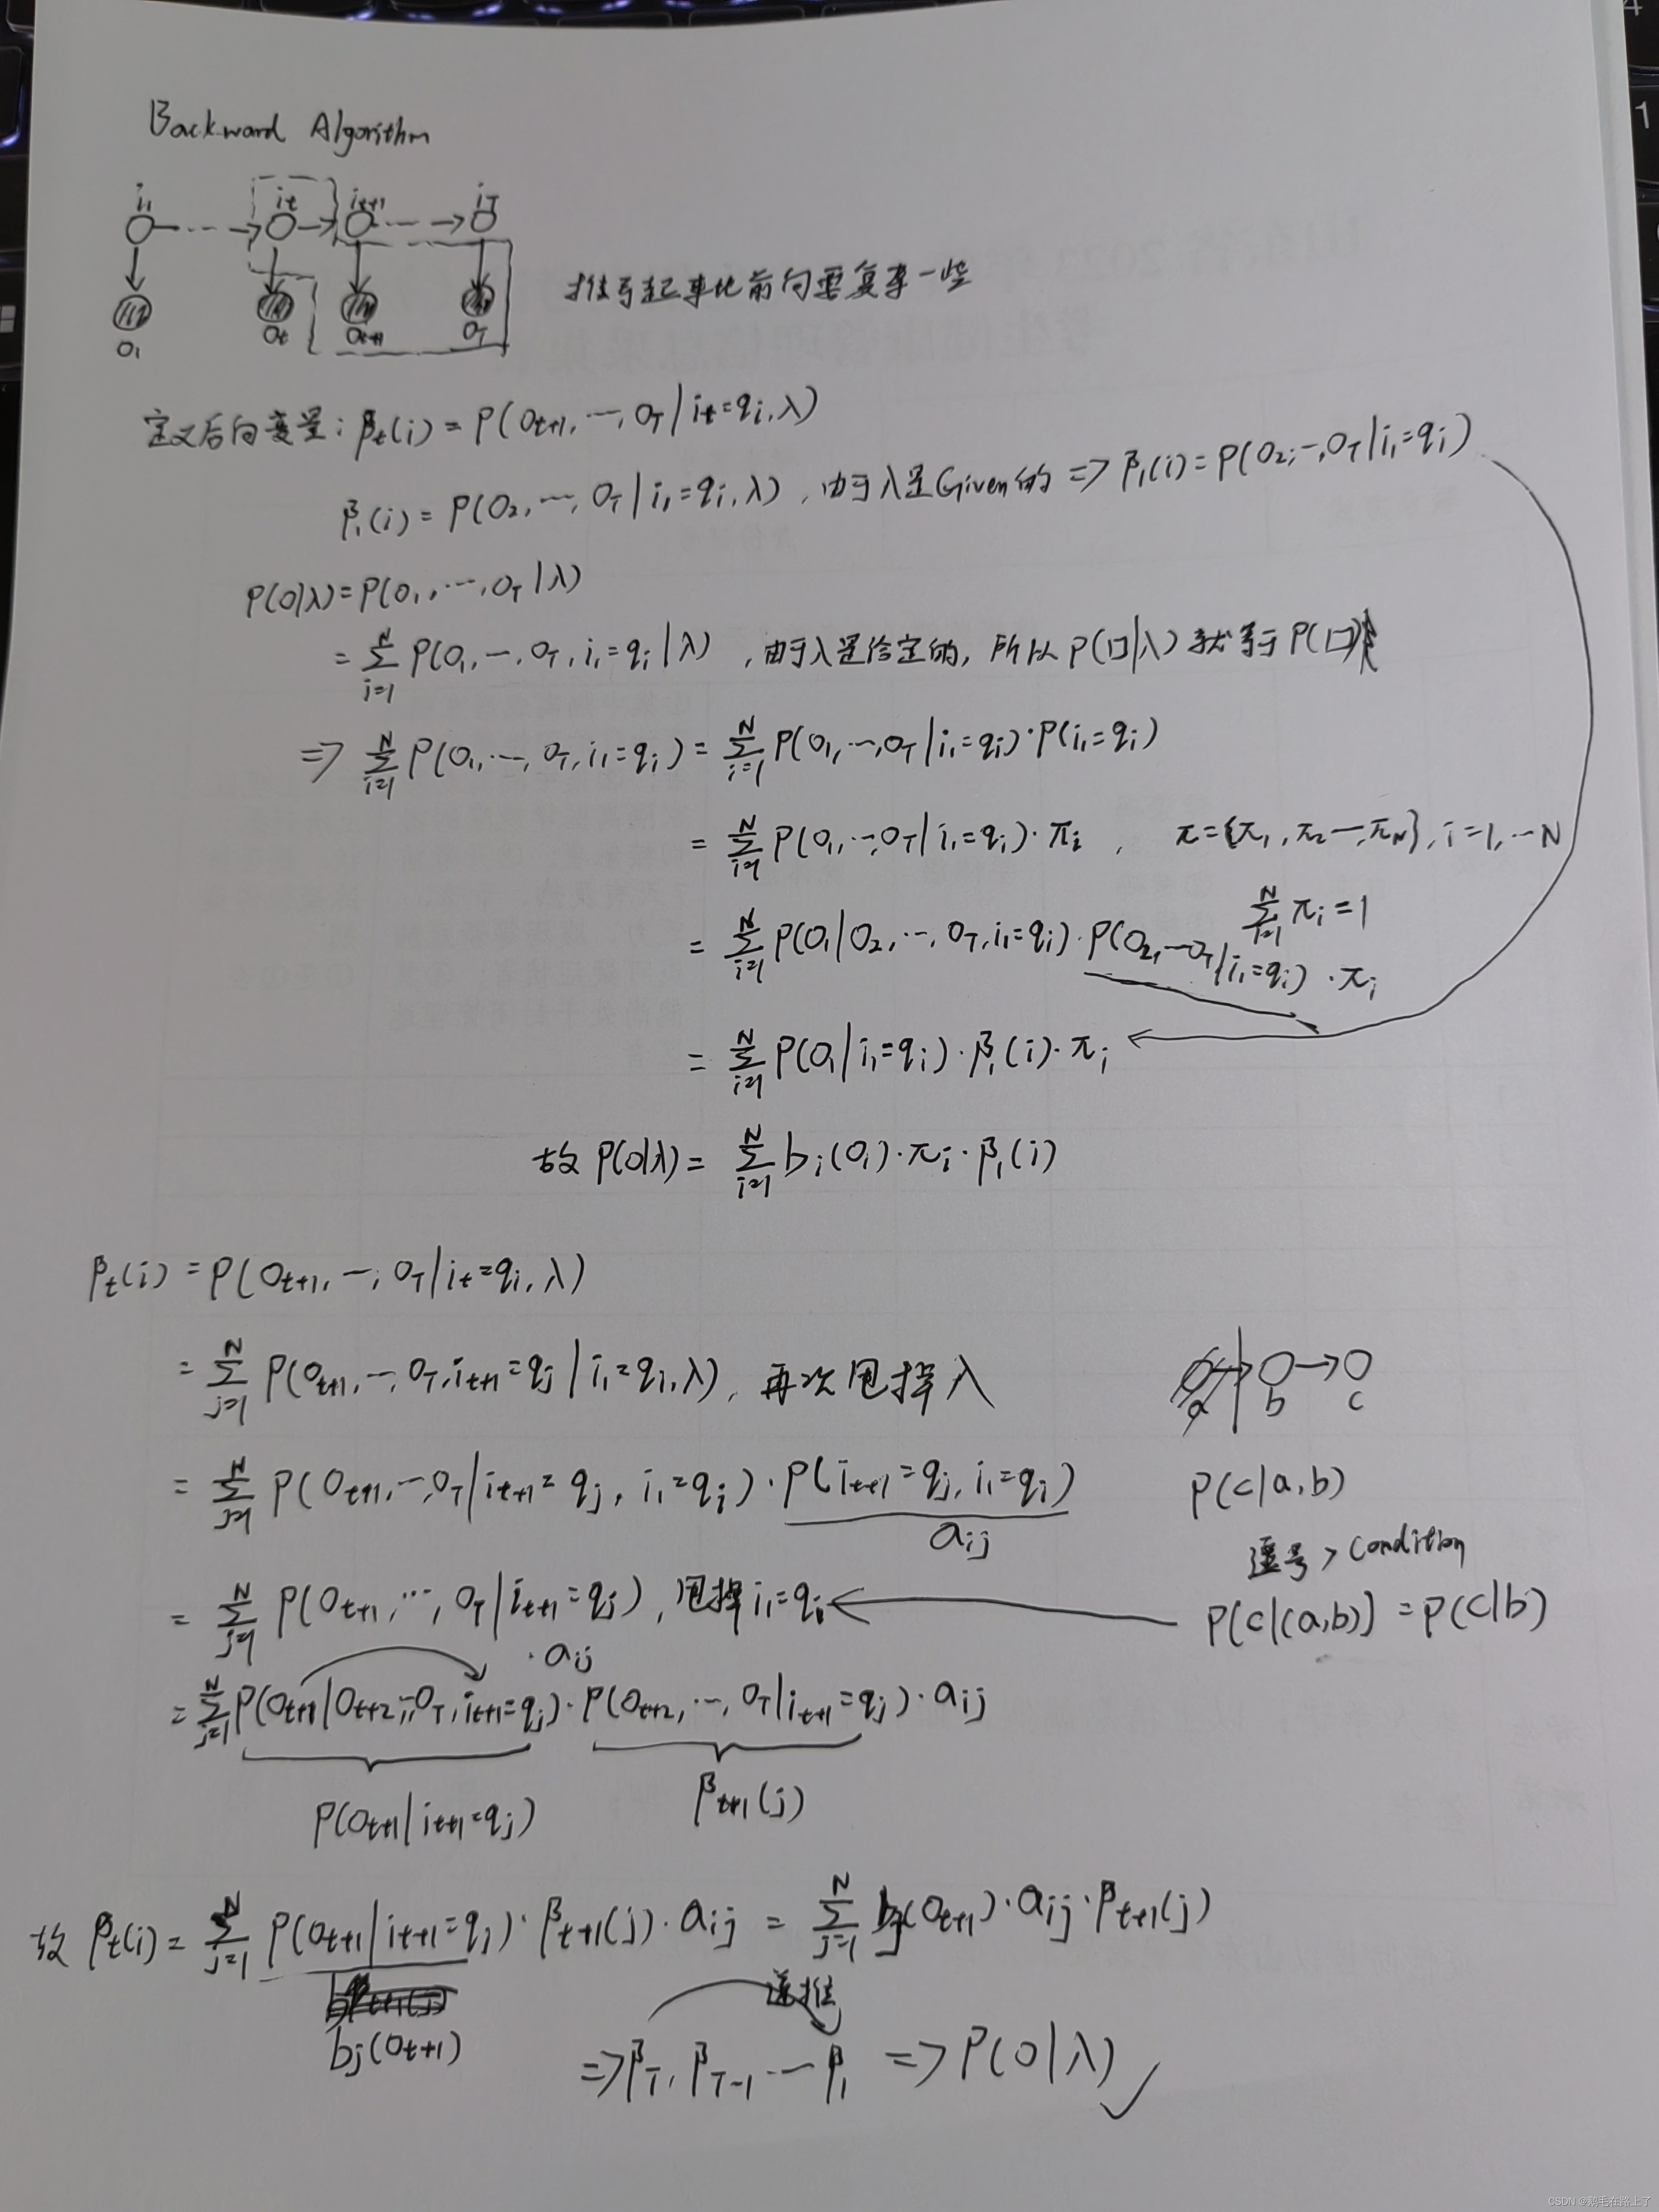 Backward Algorithm
i₁ iₜ iₜ₊₁ i_T
o₁ oₜ oₜ₊₁ o_T
推导起来比前向要复杂一些
定义后向变量: βₜ(i) = P(Oₜ₊₁, ⋯, O_T | iₜ=qᵢ, λ)
β₁(i) = P(O₂, ⋯, O_T | i₁=qᵢ, λ), 由于λ是Given的 => β₁(i) = P(O₂, ⋯, O_T | i₁=qᵢ)
P(O|λ) = P(O₁, ⋯, O_T | λ)
= ∑ᵢ₌₁ᴺ P(O₁, ⋯, O_T, i₁=qᵢ | λ), 由于λ是给定的, 所以 P(口|λ) 就等于 P(口)
=> ∑ᵢ₌₁ᴺ P(O₁, ⋯, O_T, i₁=qᵢ) = ∑ᵢ₌₁ᴺ P(O₁, ⋯, O_T | i₁=qᵢ)·P(i₁=qᵢ)
= ∑ᵢ₌₁ᴺ P(O₁, ⋯, O_T | i₁=qᵢ)·πᵢ, π={π₁, π₂ ⋯, π_N}, i=1, ⋯N
∑ᵢ₌₁ᴺ πᵢ=1
= ∑ᵢ₌₁ᴺ P(O₁ | O₂, ⋯, O_T, i₁=qᵢ)·P(O₂, ⋯O_T | i₁=qᵢ)·πᵢ
= ∑ᵢ₌₁ᴺ P(O₁ | i₁=qᵢ)·β₁(i)·πᵢ
故 P(O|λ) = ∑ᵢ₌₁ᴺ bᵢ(O₁)·πᵢ·β₁(i)
βₜ(i) = P(Oₜ₊₁, ⋯, O_T | iₜ=qᵢ, λ)
= ∑ⱼ₌₁ᴺ P(Oₜ₊₁, ⋯, O_T, iₜ₊₁=qⱼ | i₁=qᵢ, λ), 再次甩掉λ
a b c
= ∑ⱼ₌₁ᴺ P(Oₜ₊₁, ⋯, O_T | iₜ₊₁=qⱼ, i₁=qᵢ)·P(iₜ₊₁=qⱼ, i₁=qᵢ)
aᵢⱼ
P(c|a,b)
逗号 > Condition
= ∑ⱼ₌₁ᴺ P(Oₜ₊₁, ⋯, O_T | iₜ₊₁=qⱼ), 甩掉 i₁=qᵢ
·aᵢⱼ
P[c|(a,b)] = P(c|b)
= ∑ⱼ₌₁ᴺ P(Oₜ₊₁ | Oₜ₊₂, ⋯O_T, iₜ₊₁=qⱼ)·P(Oₜ₊₂, ⋯, O_T | iₜ₊₁=qⱼ)·aᵢⱼ
P(Oₜ₊₁ | iₜ₊₁=qⱼ) βₜ₊₁(j)
故 βₜ(i) = ∑ⱼ₌₁ᴺ P(Oₜ₊₁ | iₜ₊₁=qⱼ)·βₜ₊₁(j)·aᵢⱼ = ∑ⱼ₌₁ᴺ bⱼ(Oₜ₊₁)·aᵢⱼ·βₜ₊₁(j)
bⱼ(Oₜ₊₁)
递推
=> β_T, β_T₋₁ ⋯ β₁ => P(O|λ) ✓
CSDN @鹅毛在路上了